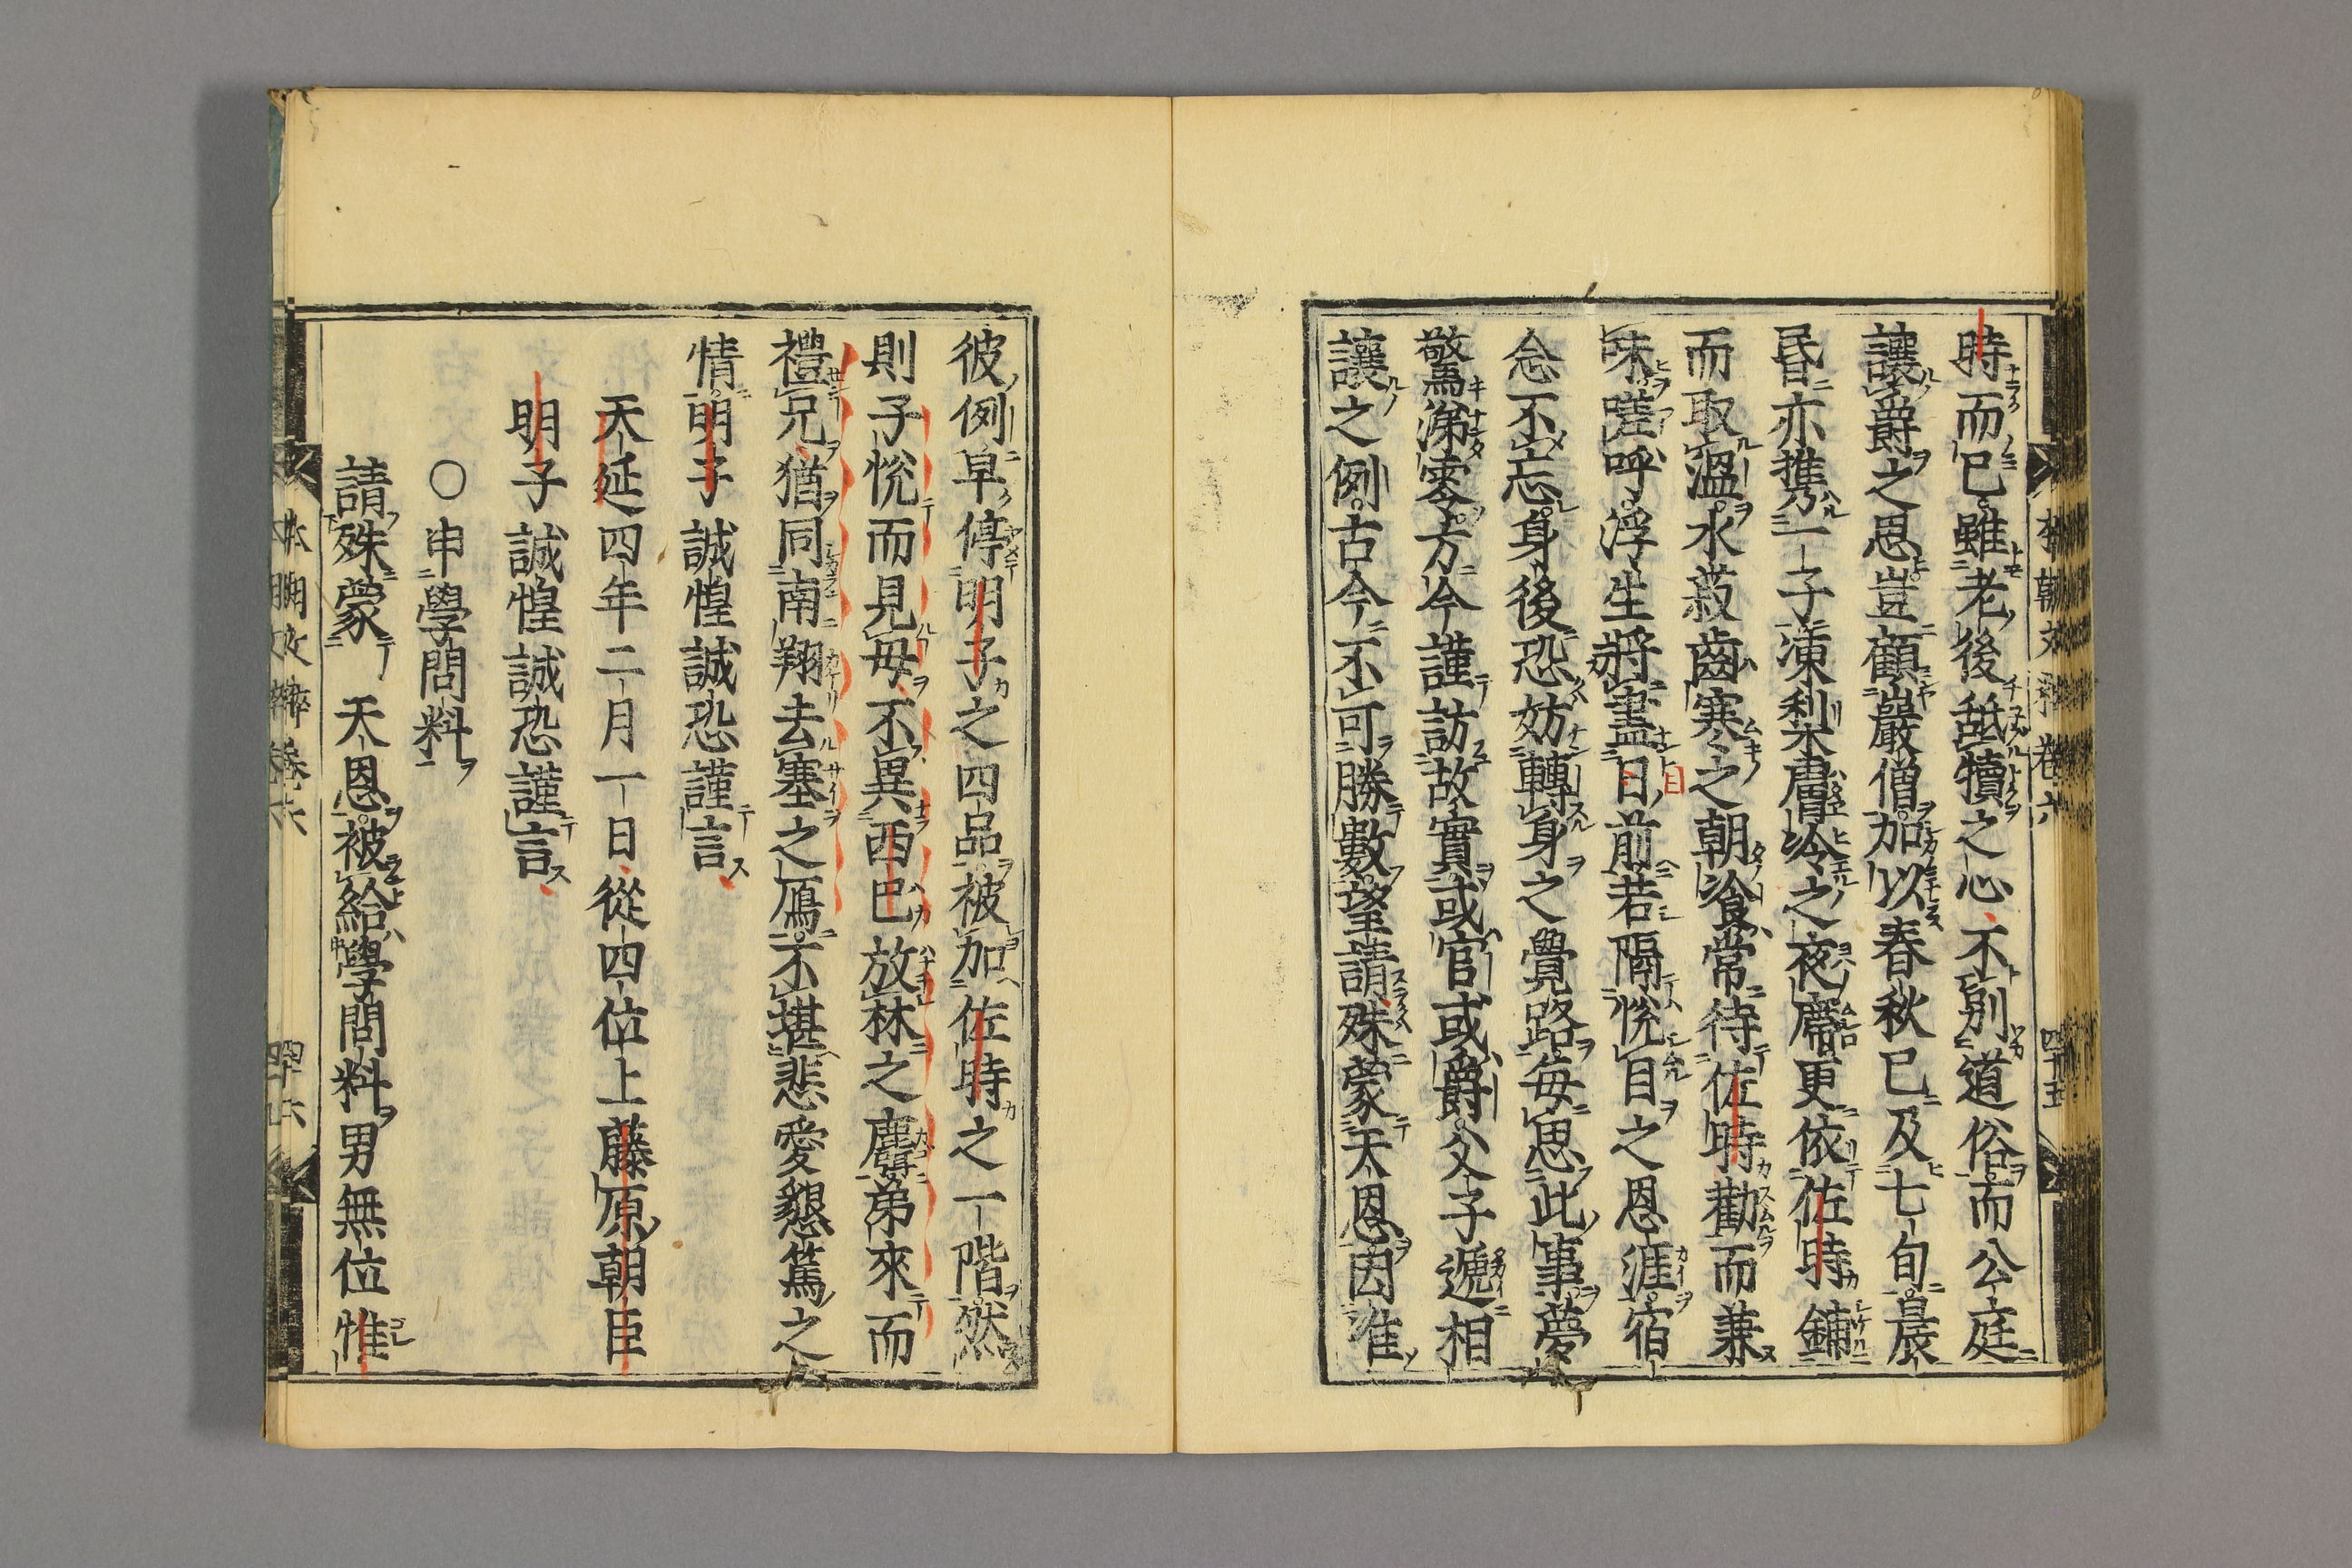 時而已雖老後舐犢之心不別道俗而公庭
讓爵之恩豈顧嚴僧加以春秋已及七旬晨
昏亦携一子凍利木膚冷之夜席更依佐時鋪
而取溫水菽齒寒之朝飡常待佐時勸而兼
味嗟呼浮生將盡日前若隔悅目之恩涯宿
念不忘身後恐妨轉身之覺路每思此事夢
驚涕零方今謹訪故實或官或爵父子遞相
讓之例古今不可勝數望請殊蒙天恩因准
彼例早停明子之四品被加佐時之一階然
則子悅而見母不異西巴放林之麑弟來而
禮兄猶同南翔去塞之鴈不堪悲愛懇篤之
情明子誠惶誠恐謹言
天延四年二月一日從四位上藤原朝臣
明子誠惶誠恐謹言
〇申學問料
請殊蒙 天恩被給學問料男無位惟
本朝文粹卷六 四十五
本朝文粹卷六 四十六